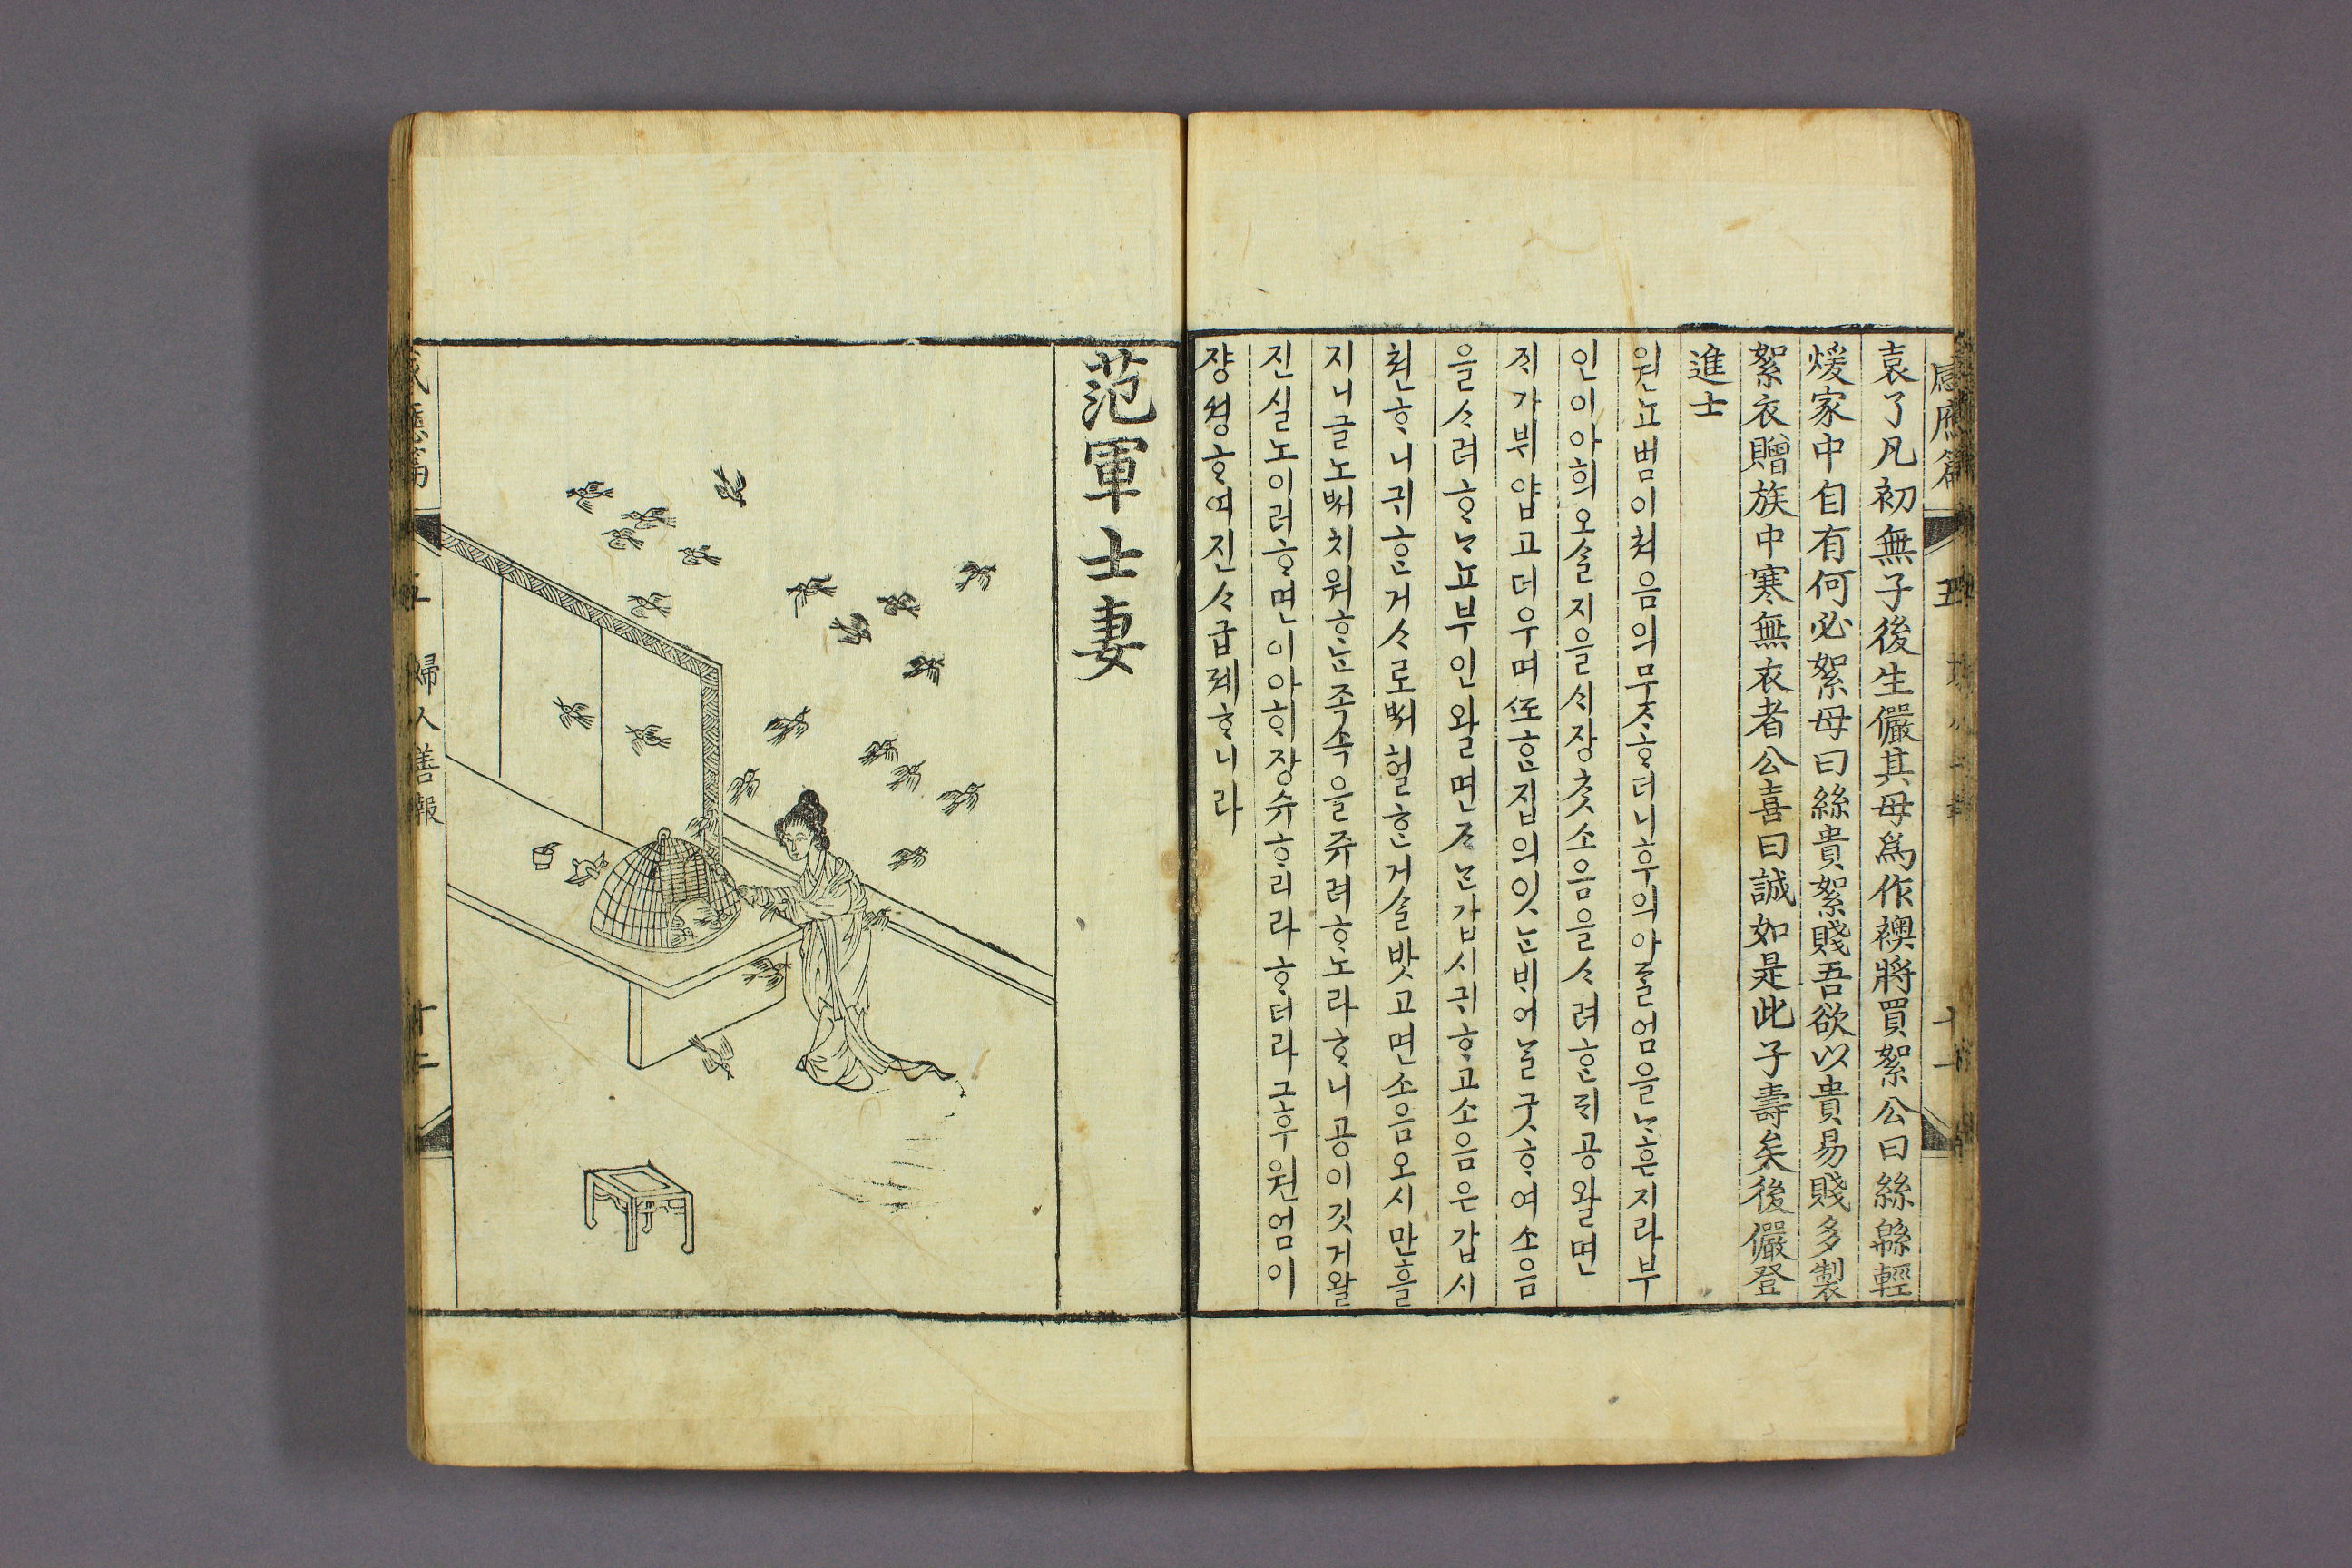 感應篇 五 十一
袁了凡初無子後生儼其母爲作襖將買絮公曰絲緜輕
煖家中自有何必絮母曰絲貴絮賤吾欲以貴易賤多製
絮衣贈族中寒無衣者公喜曰誠如是此子壽矣後儼登
進士
원뇨범이쳐음의무ᄌᆞᄒᆞ더니후의아ᄃᆞᆯ엄을ᄂᆞ흔지라부
인이아희오슬지을ᄉᆡ장ᄎᆞᆺ소음을ᄉᆞ려ᄒᆞᆫᄃᆡ공왈면
ᄌᆡ가ᄇᆡ얍고더우며ᄯᅩᄒᆞᆫ집의잇ᄂᆞᆫᄇᆡ어ᄂᆞᆯ굿ᄒᆞ여소음
을ᄉᆞ려ᄒᆞᄂᆞ뇨부인왈면ᄌᆞᄂᆞᆫ갑시귀ᄒᆞ고소음은갑시
쳔ᄒᆞ니귀ᄒᆞᆫ거ᄉᆞ로ᄡᅥ헐ᄒᆞᆫ거슬밧고면소음오시만흘
지니글노ᄡᅥ치워ᄒᆞᄂᆞᆫ족속을쥬려ᄒᆞ노라ᄒᆞ니공이깃거왈
진실노이러ᄒᆞ면이아ᄒᆡ장슈ᄒᆞ리라ᄒᆞ더라그후원엄이
쟝셩ᄒᆞ여진ᄉᆞ급졔ᄒᆞ니라
范軍士妻
感應篇 五 婦人善報 十二